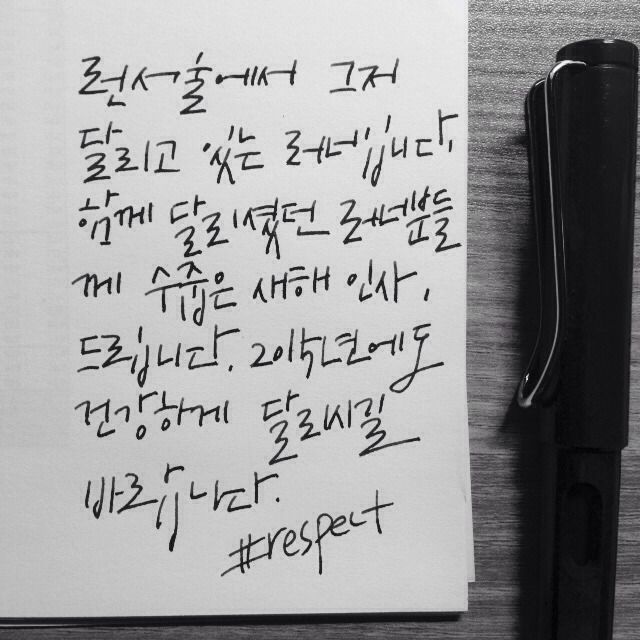 런서울에서 그저
달리고 있는 러너입니다.
함께 달리셨던 러너분들
께 수줍은 새해 인사,
드립니다. 2015년에도
건강하게 달리시길
바랍니다.
#respect